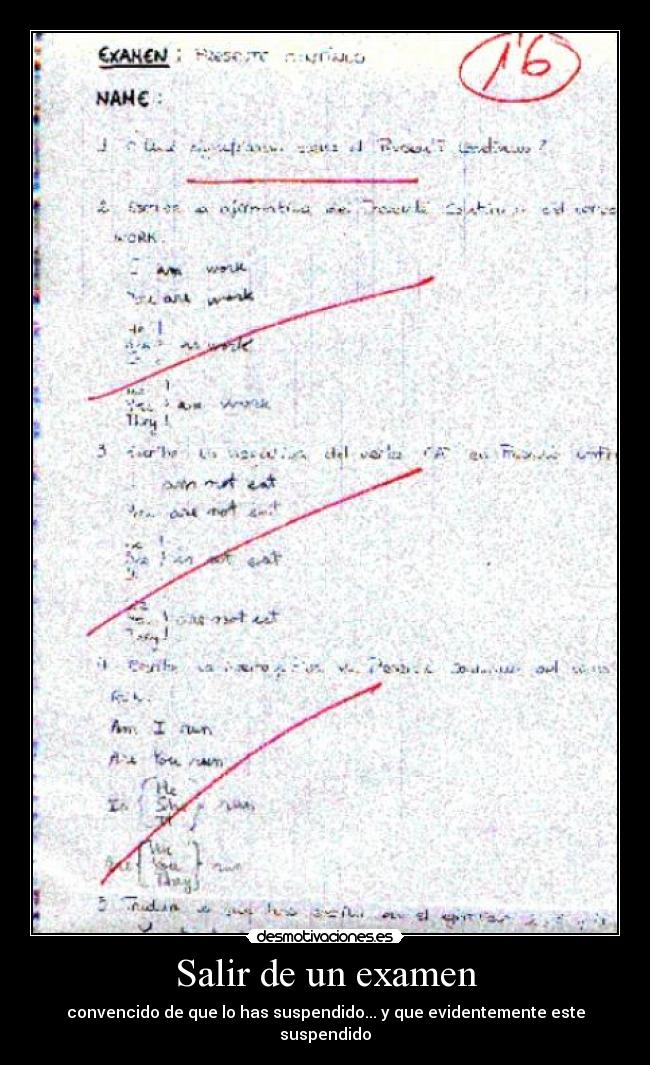 EXAMEN : PRESENTE CONTINUO
1'6
NAME :
1. ¿ Qué significan el Present Continuo ?
2. Escribe la afirmativa del Presente Continuo del verbo
WORK.
I am work
You are work
He
She is work
It
We
You are work
They
3. Escribe la negativa del verbo EAT en Presente
I am not eat
You are not eat
He
She is not eat
It
We
You are not eat
They
4. Escribe la interrogativa del Presente Continuo del verbo
RUN.
Am I run
Are You run
He
Is She run
It
We
Are You run
They
5. Traduce lo que has escrito en el
desmotivaciones.es
Salir de un examen
convencido de que lo has suspendido... y que evidentemente este
suspendido